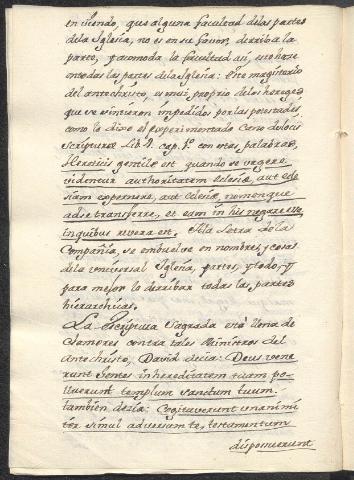 entiendo, que alguna facultad delas partes
dela Iglesia, no es en su favor, derriba la
parte, y acomoda la facultad asi, esto hase
en todas las partes dela Iglesia: Este magisterio
del antechristo, es mui proprio delos hereges
que se vintieron impedidos por las potestades,
como lo dixo el experimentado Cano de locis
Scripturæ Lib. 4. cap. 1.º con estas palabras,
Hereticis gentile est quando se urgere
videntur authoritatem Eclesiæ, aut Ecle
siam contemnere, aut Eclesiæ, nomen que
ad se transferre, et eam in his negare esse
in quibus revera est. Esta Secta dela
Compañia, se embuelve en nombres, y cosas
dela universal Iglesia, partes, y todo, y
para mejor lo derribar todas las partes
hierarchicas.
La Escriptura Sagrada está llena de
clamores contra tales Ministros del
Antechristo, David decia: Deus vene
runt gentes in hereditatem tuam po-
lluerunt templum sanctum tuum.
tambien decia: Cogitaverunt unanimi
ter simul adversum te, testamentum
disposuerunt